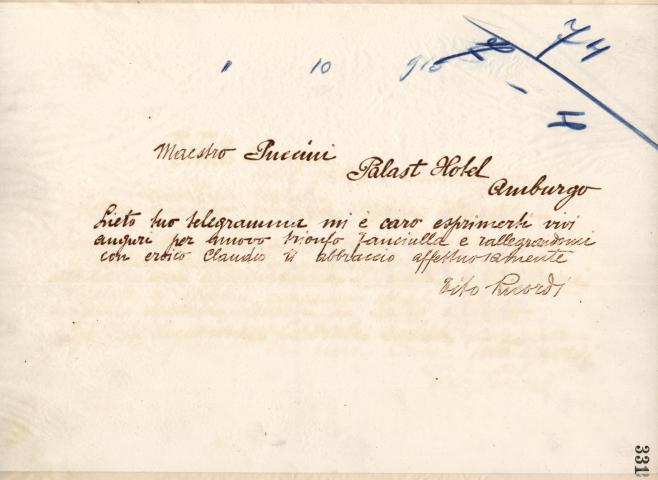 74
1 10 913
- H
Maestro Puccini
Palast Hotel
Amburgo
Lieto tuo telegramma mi è caro esprimerti vivi
auguri per nuovo trionfo Fanciulla e rallegrandomi
con eroico Claudio ti abbraccio affettuosamente
Tito Ricordi
331